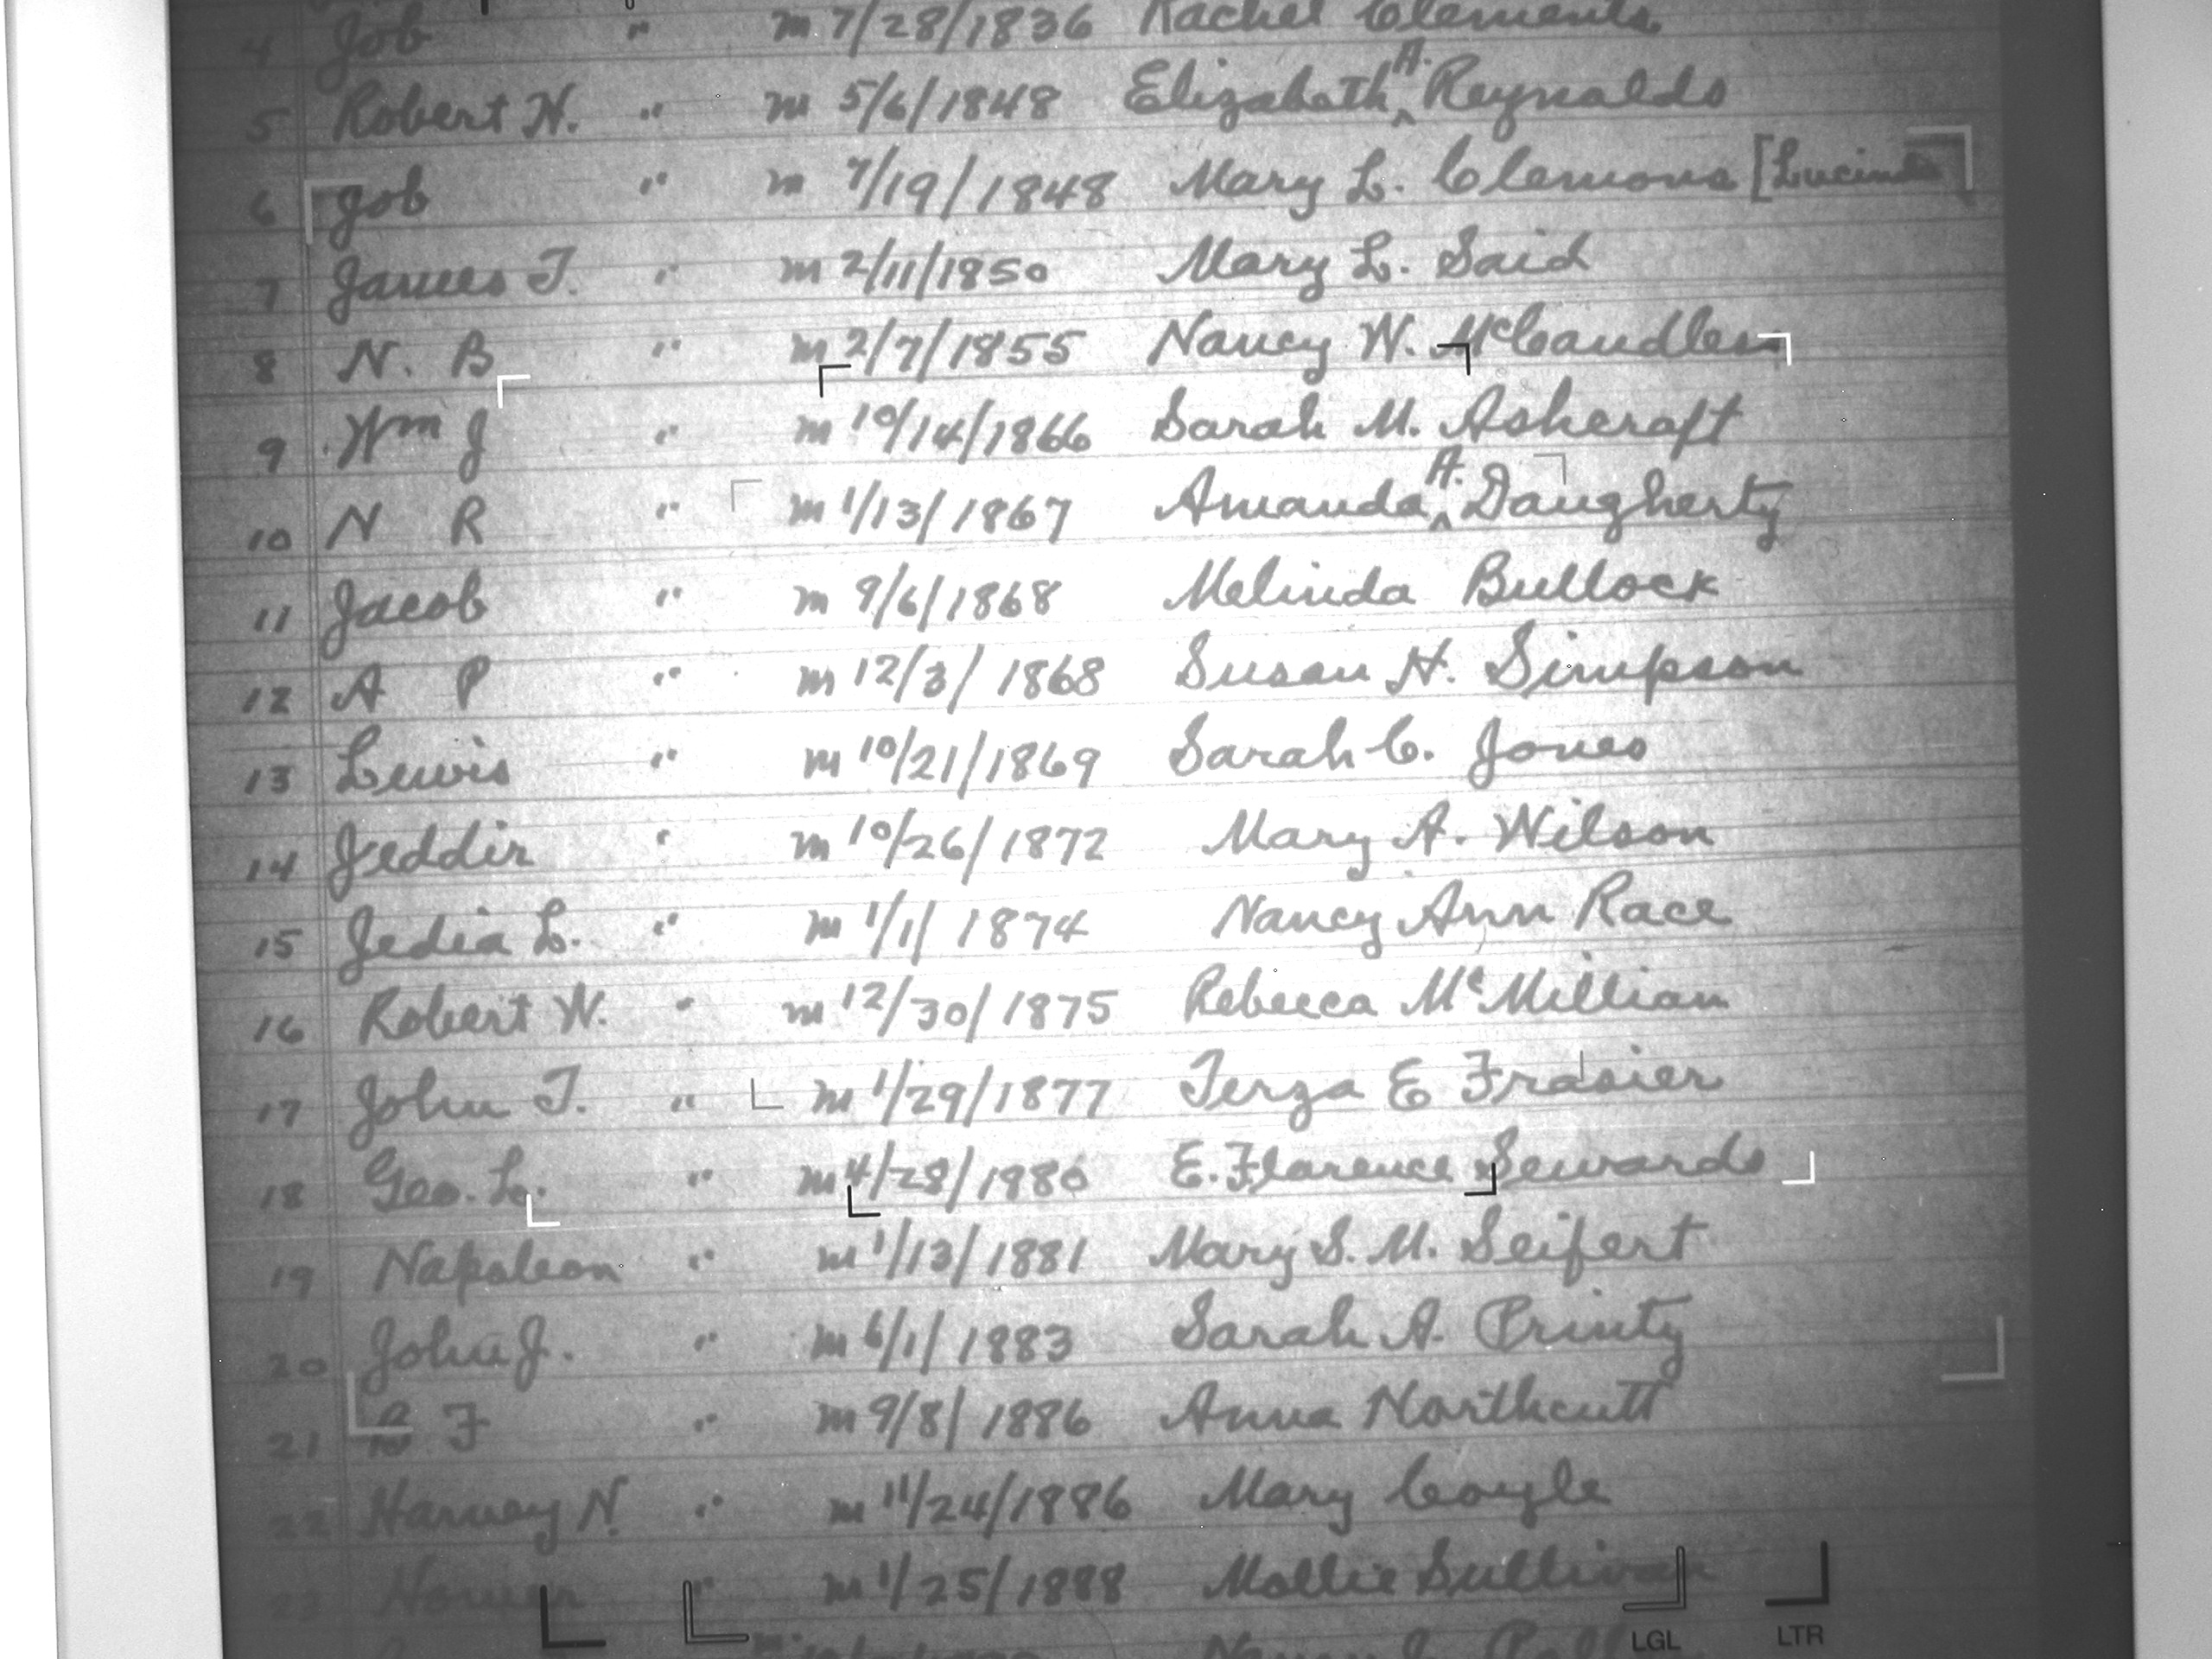 4 Job " m 7/28/1836 Rachel Clements
5 Robert H. " m 5/6/1848 Elizabath A. Reynalds
6 Job " m 7/19/1848 Mary L. Clemons [Lucinda
7 James T. " m 2/11/1850 Mary L. Said
8 N. B " m 2/7/1855 Nancy W. McCandless
9 Wm J " m 10/14/1866 Sarah M. Ashcraft
10 N R " m 1/13/1867 Amanda A. Daugherty
11 Jacob " m 9/6/1868 Melinda Bullock
12 A P " m 12/3/1868 Susan H. Simpson
13 Lewis " m 10/21/1869 Sarah C. Jones
14 Jeddir " m 10/26/1872 Mary A. Wilson
15 Jedia L. " m 1/1/1874 Nancy Ann Race
16 Robert W. " m 12/30/1875 Rebecca McMillian
17 John T. " m 1/29/1877 Terza E Frasier
18 Geo. L. " m 4/28/1880 E. Florence Sewards
19 Napoleon " m 1/13/1881 Mary S. M. Seifert
20 John J. " m 6/1/1883 Sarah A. Printy
21 F " m 9/8/1886 Anna Northcutt
22 Harvey N. " m 11/24/1886 Mary Coyle
23 " m 1/25/1888 Mollie Sullivan
LGL LTR